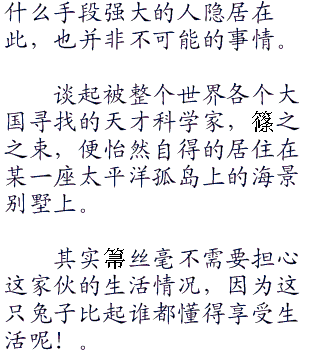 什么手段强大的人隐居在
此，也并非不可能的事情。
谈起被整个世界各个大
国寻找的天才科学家，篠之
之束，便怡然自得的居住在
某一座太平洋孤岛上的海景
别墅上。
其实箒丝毫不需要担心
这家伙的生活情况，因为这
只兔子比起谁都懂得享受生
活呢！。